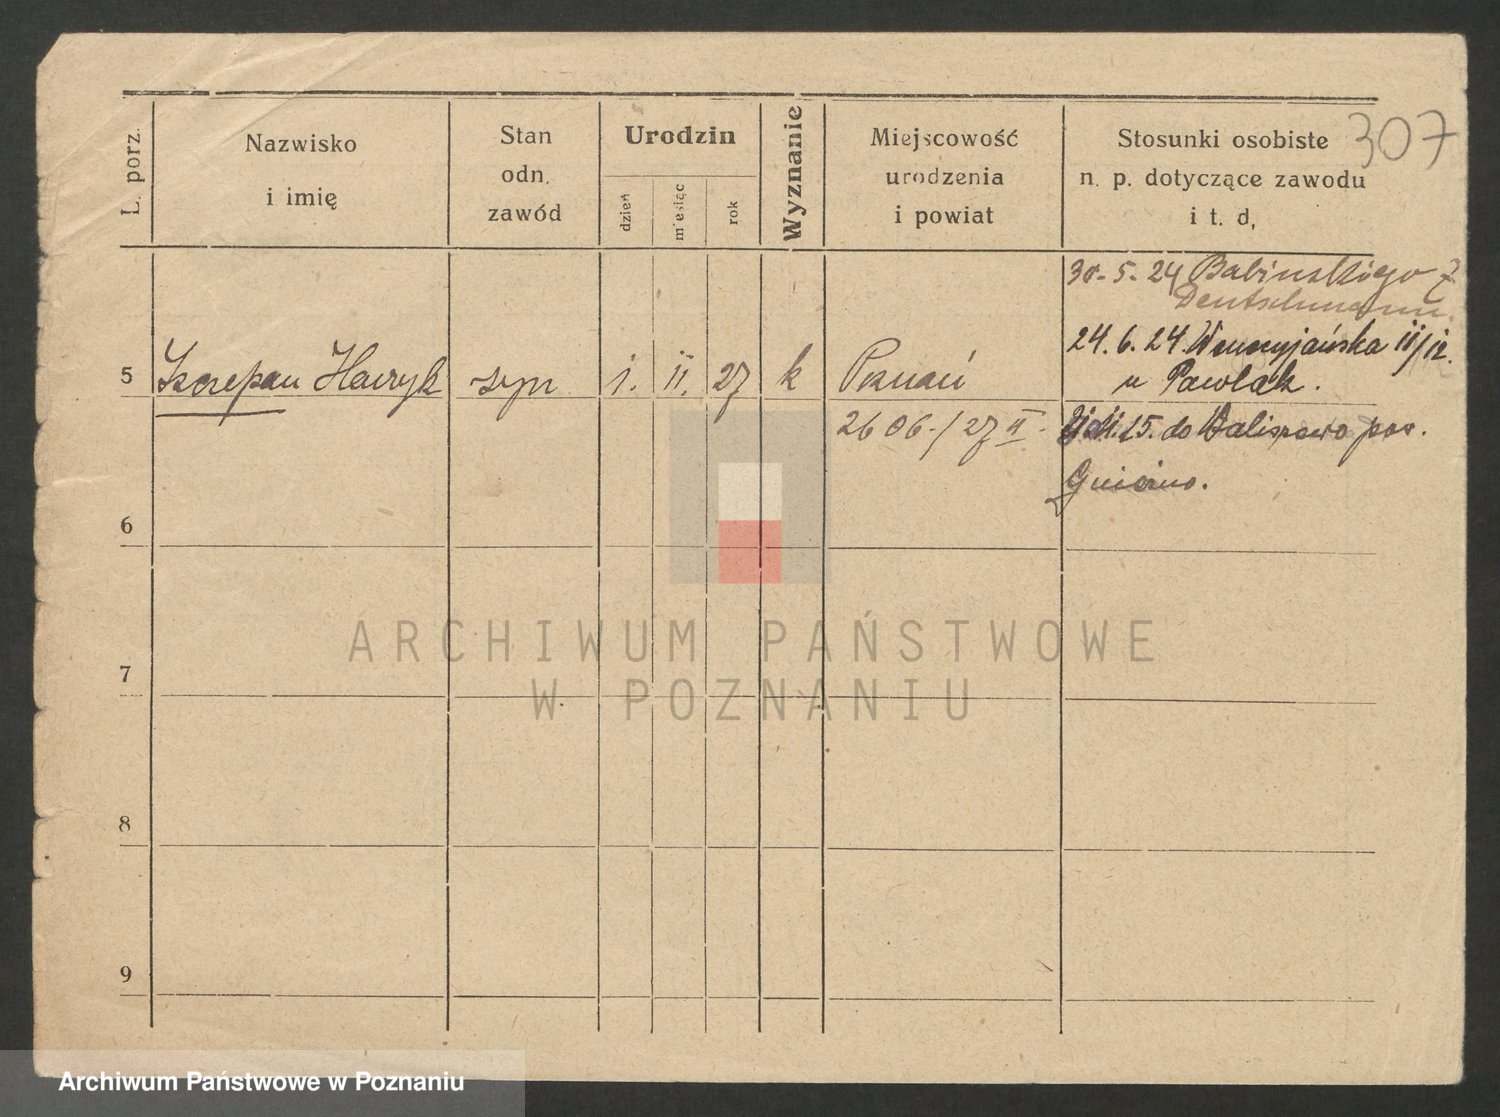 307
L. porz.
Nazwisko
i imię
Stan
odn.
zawód
Urodzin
dzień
miesiąc
rok
Wyznanie
Miejscowość
urodzenia
i powiat
Stosunki osobiste
n. p. dotyczące zawodu
i t. d,
30.5.24 Babińskiego 7
Deutschmann.
24.6.24. 11/12.
5 Szczepan Henryk syn 1. II. 27 k Poznań u Pawlak.
2606./27 II. 25. do pow.
Gniezno.
6
7
8
9
ARCHIWUM PAŃSTWOWE
W POZNANIU
Archiwum Państwowe w Poznaniu